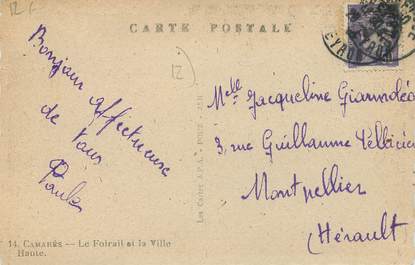 12 F
CARTE POSTALE
12
Bonjour affectueux
de tous
Paule
Melle Jacqueline
3, rue Guillaume
Montpellier
(Hérault)
Les Cartes A.P.A. - POUX - ALBI
14. CAMARÈS — Le Foirail et la Ville
Haute.